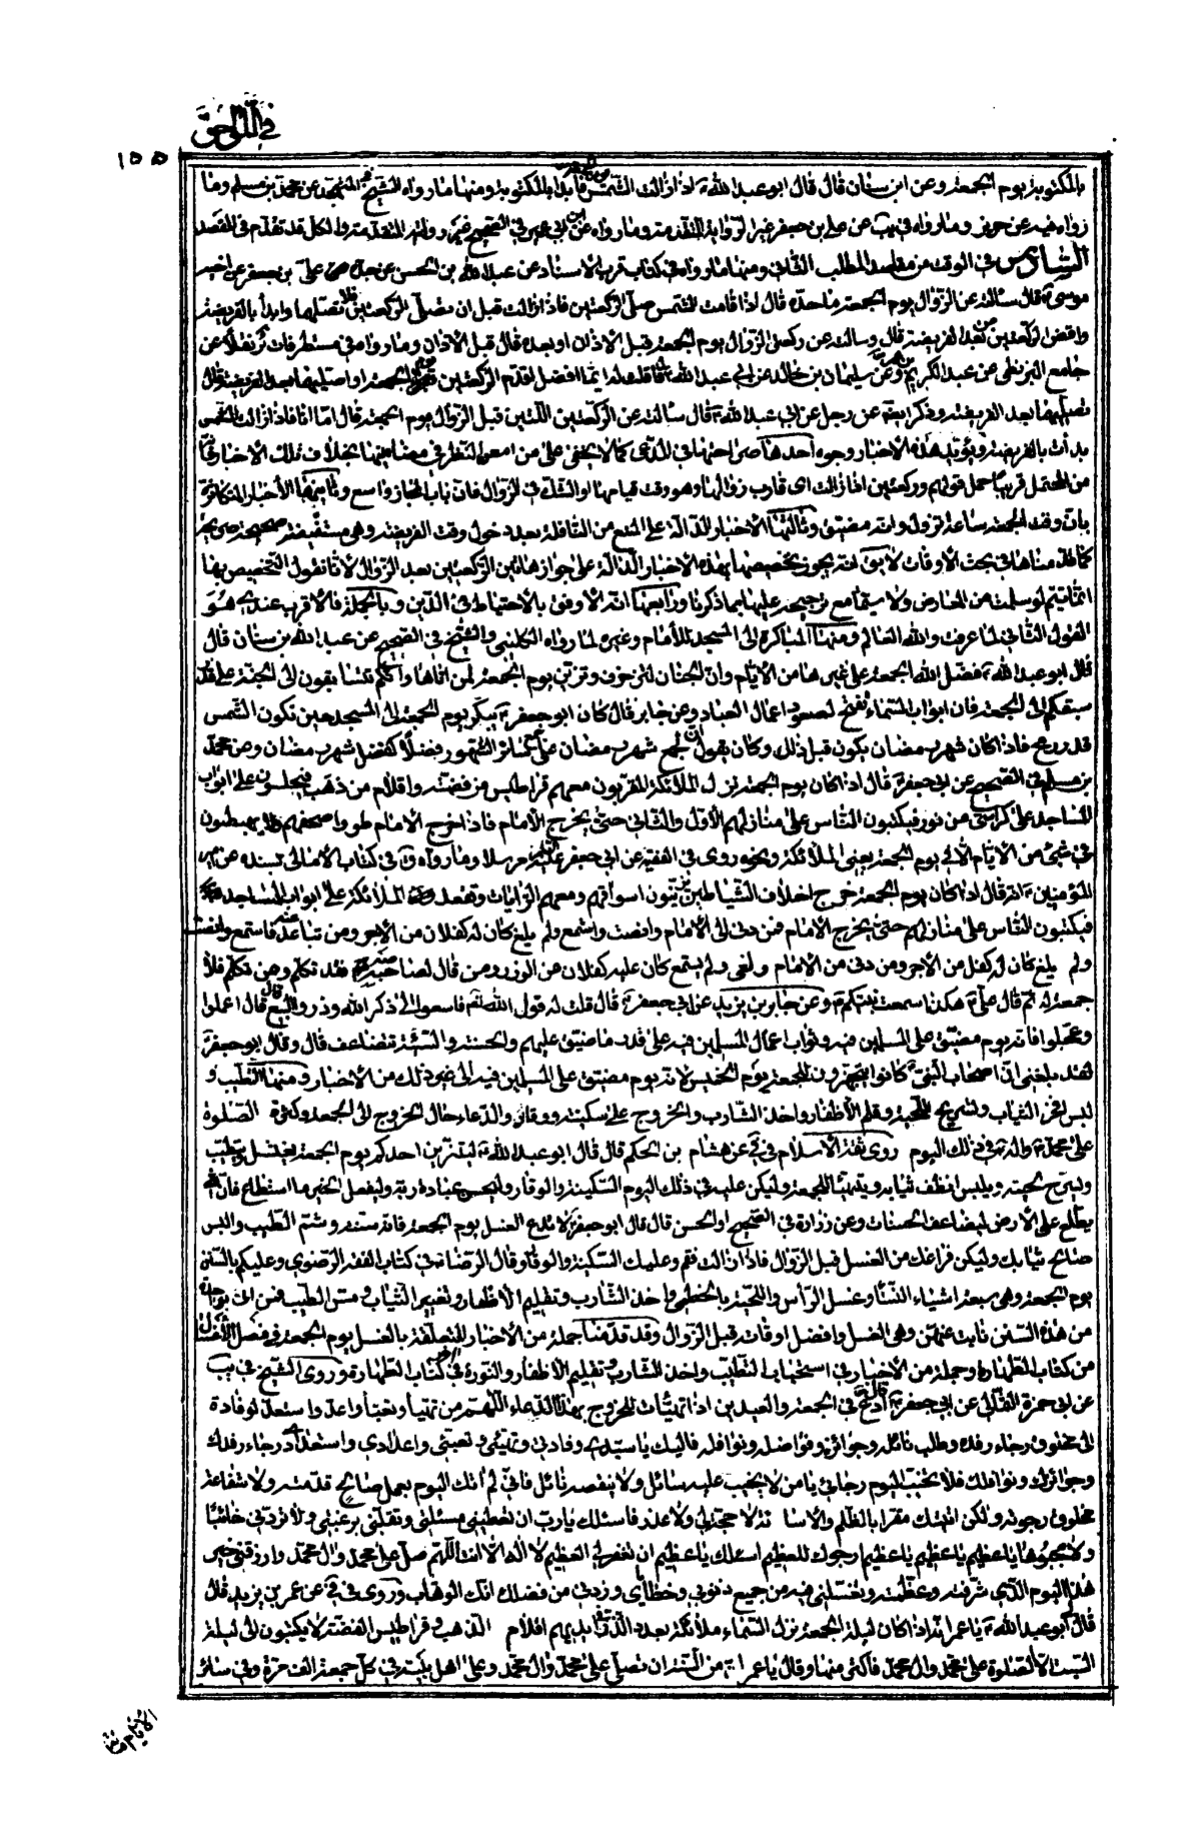 في اللواحق
١٥٥
بالمكتوبة يوم الجمعة وعن ابن سنان قال قال ابو عبد الله ع اذا زالت الشمس فابدا بالمكتوبة ومنها ما رواه الشيخ عن محمد بن مسلم وما
رواه فيه عن حريز وما رواه في يب عن علي بن جعفر غير الرواية المتقدمة وما رواه عن ابن ابي عمير في الصحيح غير روايته المتقدمة والكل قد تقدم في المقصد
السادس في الوقت من مقاصد المطلب الثاني ومنها ما رواه في كتاب قرب الاسناد عن عبد الله بن الحسن عن جده علي بن جعفر عن اخيه
موسى ع قال سالته عن الزوال يوم الجمعة ما حده قال اذا قامت الشمس صل الركعتين فاذا زالت قبل ان تصلي الركعتين فلا تصلهما وابدأ بالفريضة
واقض الركعتين بعد الفريضة قال وسالته عن ركعتي الزوال يوم الجمعة قبل الاذان او بعده قال قبل الاذان وما رواه في مستطرفات ئر نقلا عن
جامع البزنطي عن عبد الكريم وعن سليمان بن خالد عن ابي عبد الله ع قال قلت له ايما افضل اقدم الركعتين يوم الجمعة او اصليهما بعد الفريضة قال
تصليهما بعد الفريضة وذكر ايضا عن رجل عن ابي عبد الله ع قال سالته عن الركعتين اللتين قبل الزوال يوم الجمعة قال اما انا فاذا زالت الشمس
بدات بالفريضة ويؤيد هذه الاخبار وجوه احدها صراحتها في المدعى كما لا يخفى على من امعن النظر في مضامينها بخلاف تلك الاخبار فانه
من المحتمل قريبا حمل قولهم وركعتين اذا زالت اي قارب زوالها وهو وقت قيامها او الشك في الزوال فان باب المجاز واسع وثانيها الأخبار المتكاثرة
بان وقت الجمعة ساعة تزول وانه مضيق وثالثها الأخبار الدالة على المنع من النافلة بعد دخول وقت الفريضة وهي مستفيضة صحيحة صريحة
كما قدمناها في بحث الأوقات لا يقال انه يجوز تخصيصها بهذه الاخبار الدالة على جواز هاتين الركعتين بعد الزوال لأنا نقول التخصيص بها
انما يتم لو سلمت من المعارض ولا سيما مع ترجيحه عليها بما ذكرنا ورابعها انه الاوفق بالاحتياط في الدين وبالجملة فالاقرب عندي هو
القول الثاني لما عرفت والله العالم ومنها المباكرة الى المسجد للأمام وغيره لما رواه الكليني والشيخ في الصحيح عن عبد الله بن سنان قال
قال ابو عبد الله ع فضل الله الجمعة على غيرها من الأيام وان الجنان لتزخرف وتزين يوم الجمعة لمن اتاها وانكم تتسابقون الى الجنة على قدر
سبقكم الى الجمعة وان ابواب السماء لتفتح لصعود اعمال العباد وعن جابر قال كان ابو جعفر ع يبكر يوم الجمعة الى المسجد حين تكون الشمس
قدر رمح فاذا كان شهر رمضان يكون قبل ذلك وكان يقول ان لجمع شهر رمضان على جمع سائر الشهور فضلا كفضل شهر رمضان وعن محمد
بن مسلم في الصحيح عن ابي جعفر ع قال اذا كان يوم الجمعة نزل الملائكة المقربون معهم قراطيس من فضة واقلام من ذهب فيجلسون على ابواب
المساجد على كراسي من نور فيكتبون الناس على منازلهم الأول والثاني حتى يخرج الأمام فاذا خرج الامام طووا صحفهم ولا يهبطون
في شيئ من الايام الا في يوم الجمعة يعني الملائكة ونحوه روى في الفقيه عن ابي جعفر مرسلا وما رواه ق في كتاب الامالي بسنده عن امير
المؤمنين ع انه قال اذا كان يوم الجمعة خرج اخلاف الشياطين يزينون اسواقهم ومعهم الرايات وتقعد الملائكة على ابواب المساجد
فيكتبون الناس على منازلهم حتى يخرج الامام فمن دنى الى الأمام وانصت واستمع ولم يلغ كان له كفلان من الأجر ومن تباعد عنه فاستمع وانصت
ولم يلغ كان له كفل من الاجر ومن دنى من الامام ولغى ولم يستمع كان عليه كفلان من الوزر ومن قال لصاحبه صه فقد تكلم ومن تكلم فلا
جمعة له ثم قال علي ع هكذا سمعت نبيكم ص وعن جابر بن يزيد عن ابي جعفر ع قال قلت له قول الله تعالى فاسعوا الى ذكر الله وذروا البيع قال قال اعملوا
وعجلوا فانه يوم مضيق على المسلمين فيه وثواب اعمال المسلمين فيه على قدر ما ضيق عليهم والحسنة والسيئة تضاعف قال وقال ابو جعفر ع
لقد بلغني ان اصحاب النبي ص كانوا يتجهزون للجمعة يوم الخميس لانه يوم مضيق على المسلمين فيه الى غير ذلك من الأخبار ومنها التطيب و
لبس افخر الثياب وتسريح اللحية وقلم الأظفار واخذ الشارب والخروج على سكينة ووقار والدعاء حال الخروج الى الجمعة وكثرة الصلوة
على محمد واله في ذلك اليوم روى ثقة الأسلام في في عن هشام بن الحكم قال قال ابو عبد الله ع ليتزين احدكم يوم الجمعة يغتسل ويتطيب
وليسرح لحيته ويلبس انظف ثيابه ويتهيا للجمعة وليكن عليه في ذلك اليوم السكينة والوقار وليحسن عبادة ربه وليفعل الخير ما استطاع فان الله
يطلع على الأرض ليضاعف الحسنات وعن زرارة في الصحيح او الحسن قال قال ابو جعفر ع لا تدع الغسل يوم الجمعة فانه سنة وشم الطيب والبس
صالح ثيابك وليكن فراغك من الغسل قبل الزوال فاذا زالت فقم وعليك السكينة والوقار وقال الرضا ع في كتاب الفقه الرضوي وعليكم بالسنن
يوم الجمعة وهي سبعة اشياء النساء وغسل الرأس واللحية بالخطمي واخذ الشارب وتقليم الأظفار وتغيير الثياب ومس الطيب فمن اتى بواحدة
من هذه السنن نابت عنهن وهي الغسل وافضل اوقاته قبل الزوال وقد قدمنا جملة من الأخبار المتعلقة بالغسل يوم الجمعة في فصل الأغسال
من كتاب الطهارة وجملة من الأخبار في استحباب التطيب واخذ الشارب وتقليم الأظفار والنورة في اخر كتاب الطهارة وروى الشيخ في يب
عن ابي حمزة الثمالي عن ابي جعفر ع قال ادع في الجمعة والعيدين اذا تهيئات للخروج بهذا الدعاء اللهم من تهيأ وتعبأ واعد واستعد لوفادة
الى مخلوق رجاء رفده وطلب نائله وجوائزه وفواضله ونوافله فاليك يا سيدي وفادتي وتهيئتي وتعبئتي واعدادي واستعدادي رجاء رفدك
وجوائزك ونوافلك فلا تخيب اليوم رجائي يا من لا يخيب عليه سائل ولا ينقصه نائل فاني لم اتك اليوم بعمل صالح قدمته ولا شفاعة
مخلوق رجوته ولكن اتيتك مقرا بالظلم والأساءة لا حجة لي ولا عذر فاسئلك يا رب ان تعطيني مسئلتي وتقلبني برغبتي ولا تردني خائبا
ولا مجبوها يا عظيم يا عظيم يا عظيم ارجوك للعظيم اسئلك يا عظيم ان تغفر لي العظيم لا اله الا انت اللهم صل على محمد وال محمد وارزقني خير
هذا اليوم الذي شرفته وعظمته وتغسلني فيه من جميع ذنوبي وخطاياي وزدني من فضلك انك الوهاب وروى في في عن عمر بن يزيد قال
قال ابو عبد الله ع يا عمر انه اذا كان ليلة الجمعة نزل من السماء ملائكة بعدد الذر في ايديهم اقلام الذهب وقراطيس الفضة لا يكتبون الى ليلة
السبت الا الصلوة على محمد وال محمد فاكثر منها وقال يا عمر ان من السنة ان تصلي على محمد وال محمد وعلى اهل بيته في كل جمعة الف مرة وفي سائر
الأيام مائة